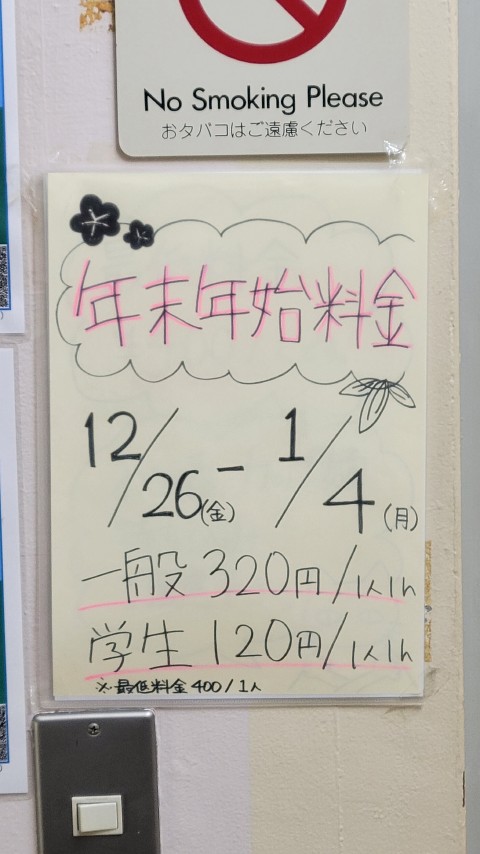 No Smoking Please
おタバコはご遠慮ください
年末年始料金
12/26(金) - 1/4(月)
一般 320円/1人1h
学生 120円/1人1h
※最低料金400/1人